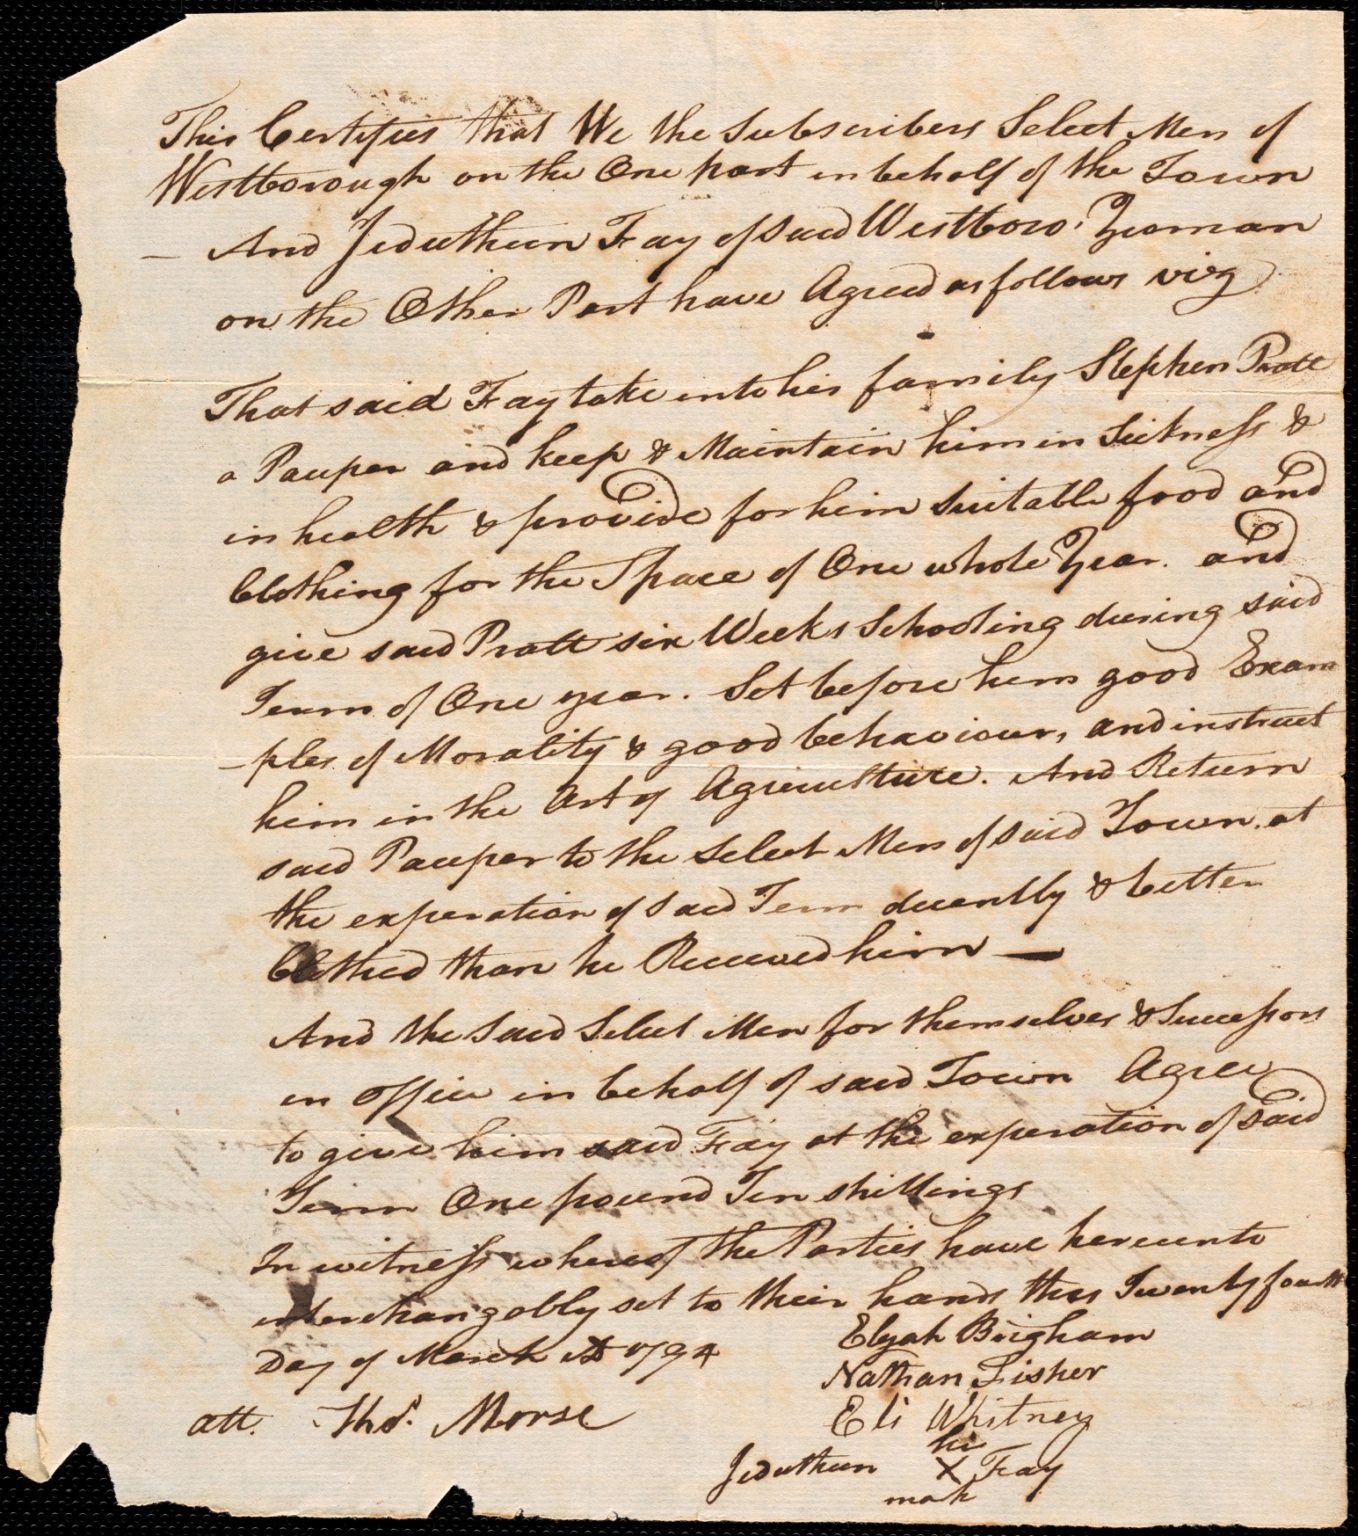 This Certifies that We the Subscribers Select Men of
Westborough on the One part in behalf of the Town
— And Jeduthun Fay of said Westboro' Yeoman
on the Other Part have Agreed as follows viz
That said Fay take into his family Stephen Pratt
a Pauper and keep & Maintain him in Sickness &
in health & provide for him Suitable food and
Clothing for the Space of One whole Year. and
give said Pratt six Weeks Schooling during said
Term of One year. Set before him good Exam
-ples of Morality & good behaviour, and instruct
him in the Art of Agriculture. And Return
said Pauper to the Select Men of said Town. at
the experation of said Term decently & better
Clothed than he Received him —
And the Said Select Men for themselves & Successors
in office in behalf of said Town Agree
to give him said Fay at the experation of said
Term One pound Ten shillings
In witness whereof the Parties have hereunto
interchangobly set to their hands this Twenty fourth
Day of March AD 1794
Elijah Brigham
Nathan Fisher
att. Thos. Morse
Eli Whitney
his
Jeduthun X Fay
mark